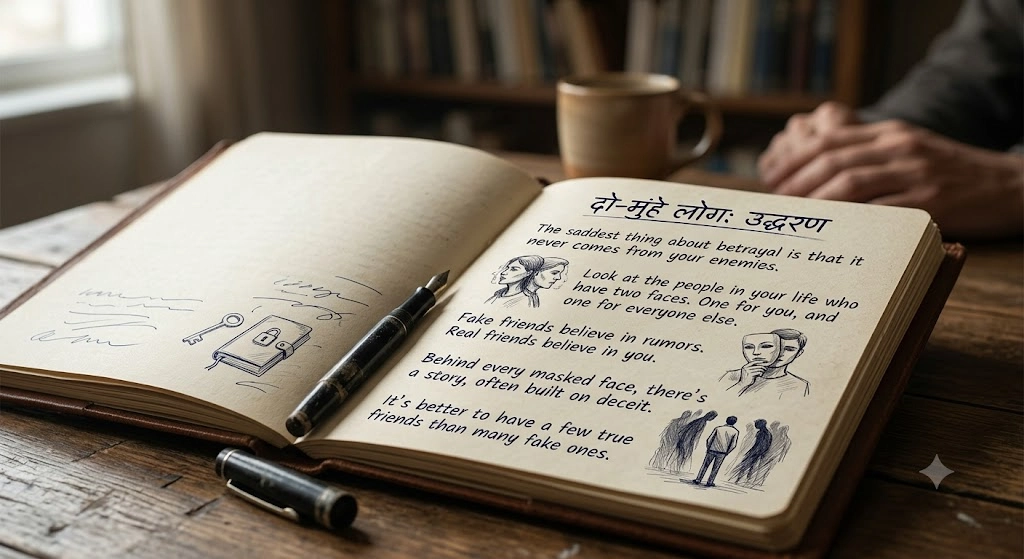 दो-मुंहे लोग: उद्धरण
The saddest thing about betrayal is that it
never comes from your enemies.
Look at the people in your life who
have two faces. One for you, and
one for everyone else.
Fake friends believe in rumors.
Real friends believe in you.
Behind every masked face, there's
a story, often built on deceit.
It's better to have a few true
friends than many fake ones.